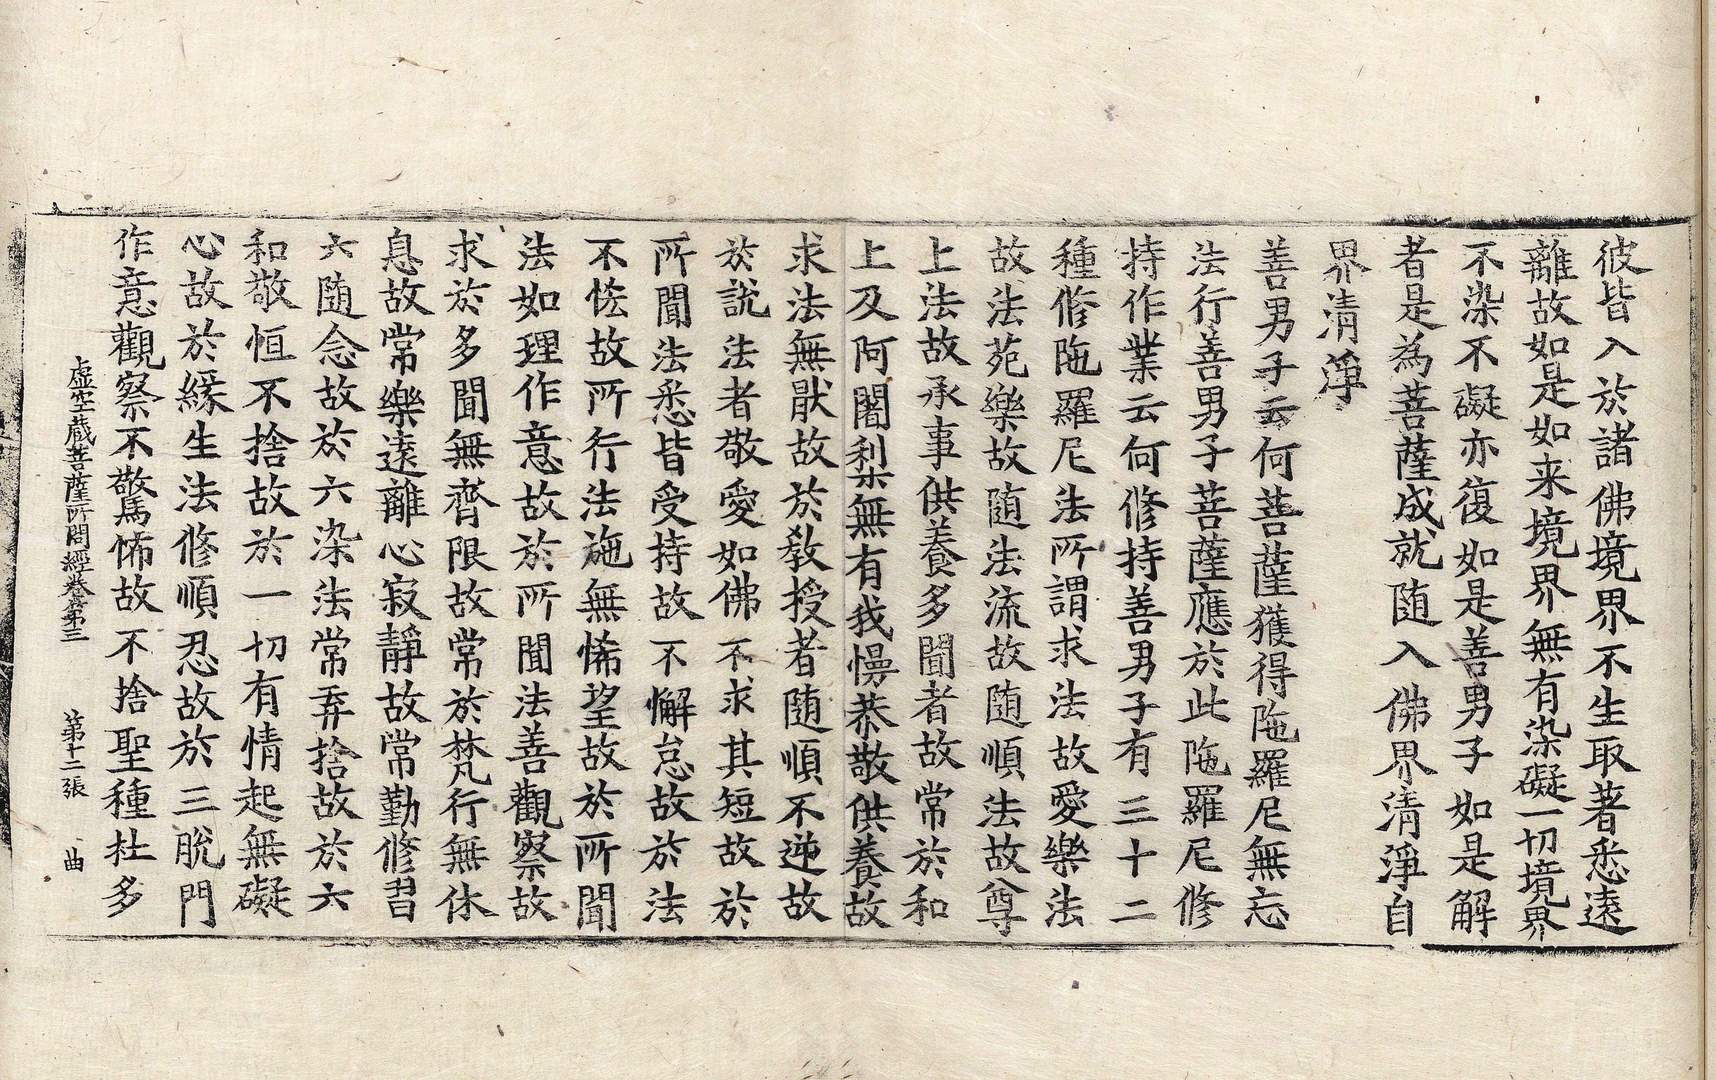 彼皆入於諸佛境界不生取著悉遠
離故如是如来境界無有染礙一切境界
不染不礙亦復如是善男子如是解
者是為菩薩成就随入佛界清淨自
界清淨
善男子云何菩薩獲得陁羅尼無忘
法行善男子菩薩應於此陁羅尼修
持作業云何修持善男子有三十二
種修陁羅尼法所謂求法故愛樂法
故法苑樂故随法流故随順法故尊
上法故承事供養多聞者故常於和
上及阿闍梨無有我慢恭敬供養故
求法無猒故於教授者随順不逆故
於說法者敬愛如佛不求其短故於
所聞法悉皆受持故不懈怠故於法
不恡故所行法施無悕望故於所聞
法如理作意故於所聞法善觀察故
求於多聞無齊限故常於梵行無休
息故常樂遠離心寂靜故常勤修習
六随念故於六染法常弃捨故於六
和敬恒不捨故於一切有情起無礙
心故於緣生法修順忍故於三脫門
作意觀察不驚怖故不捨聖種杜多
虛空藏菩薩所問經卷第三 第十二張 曲